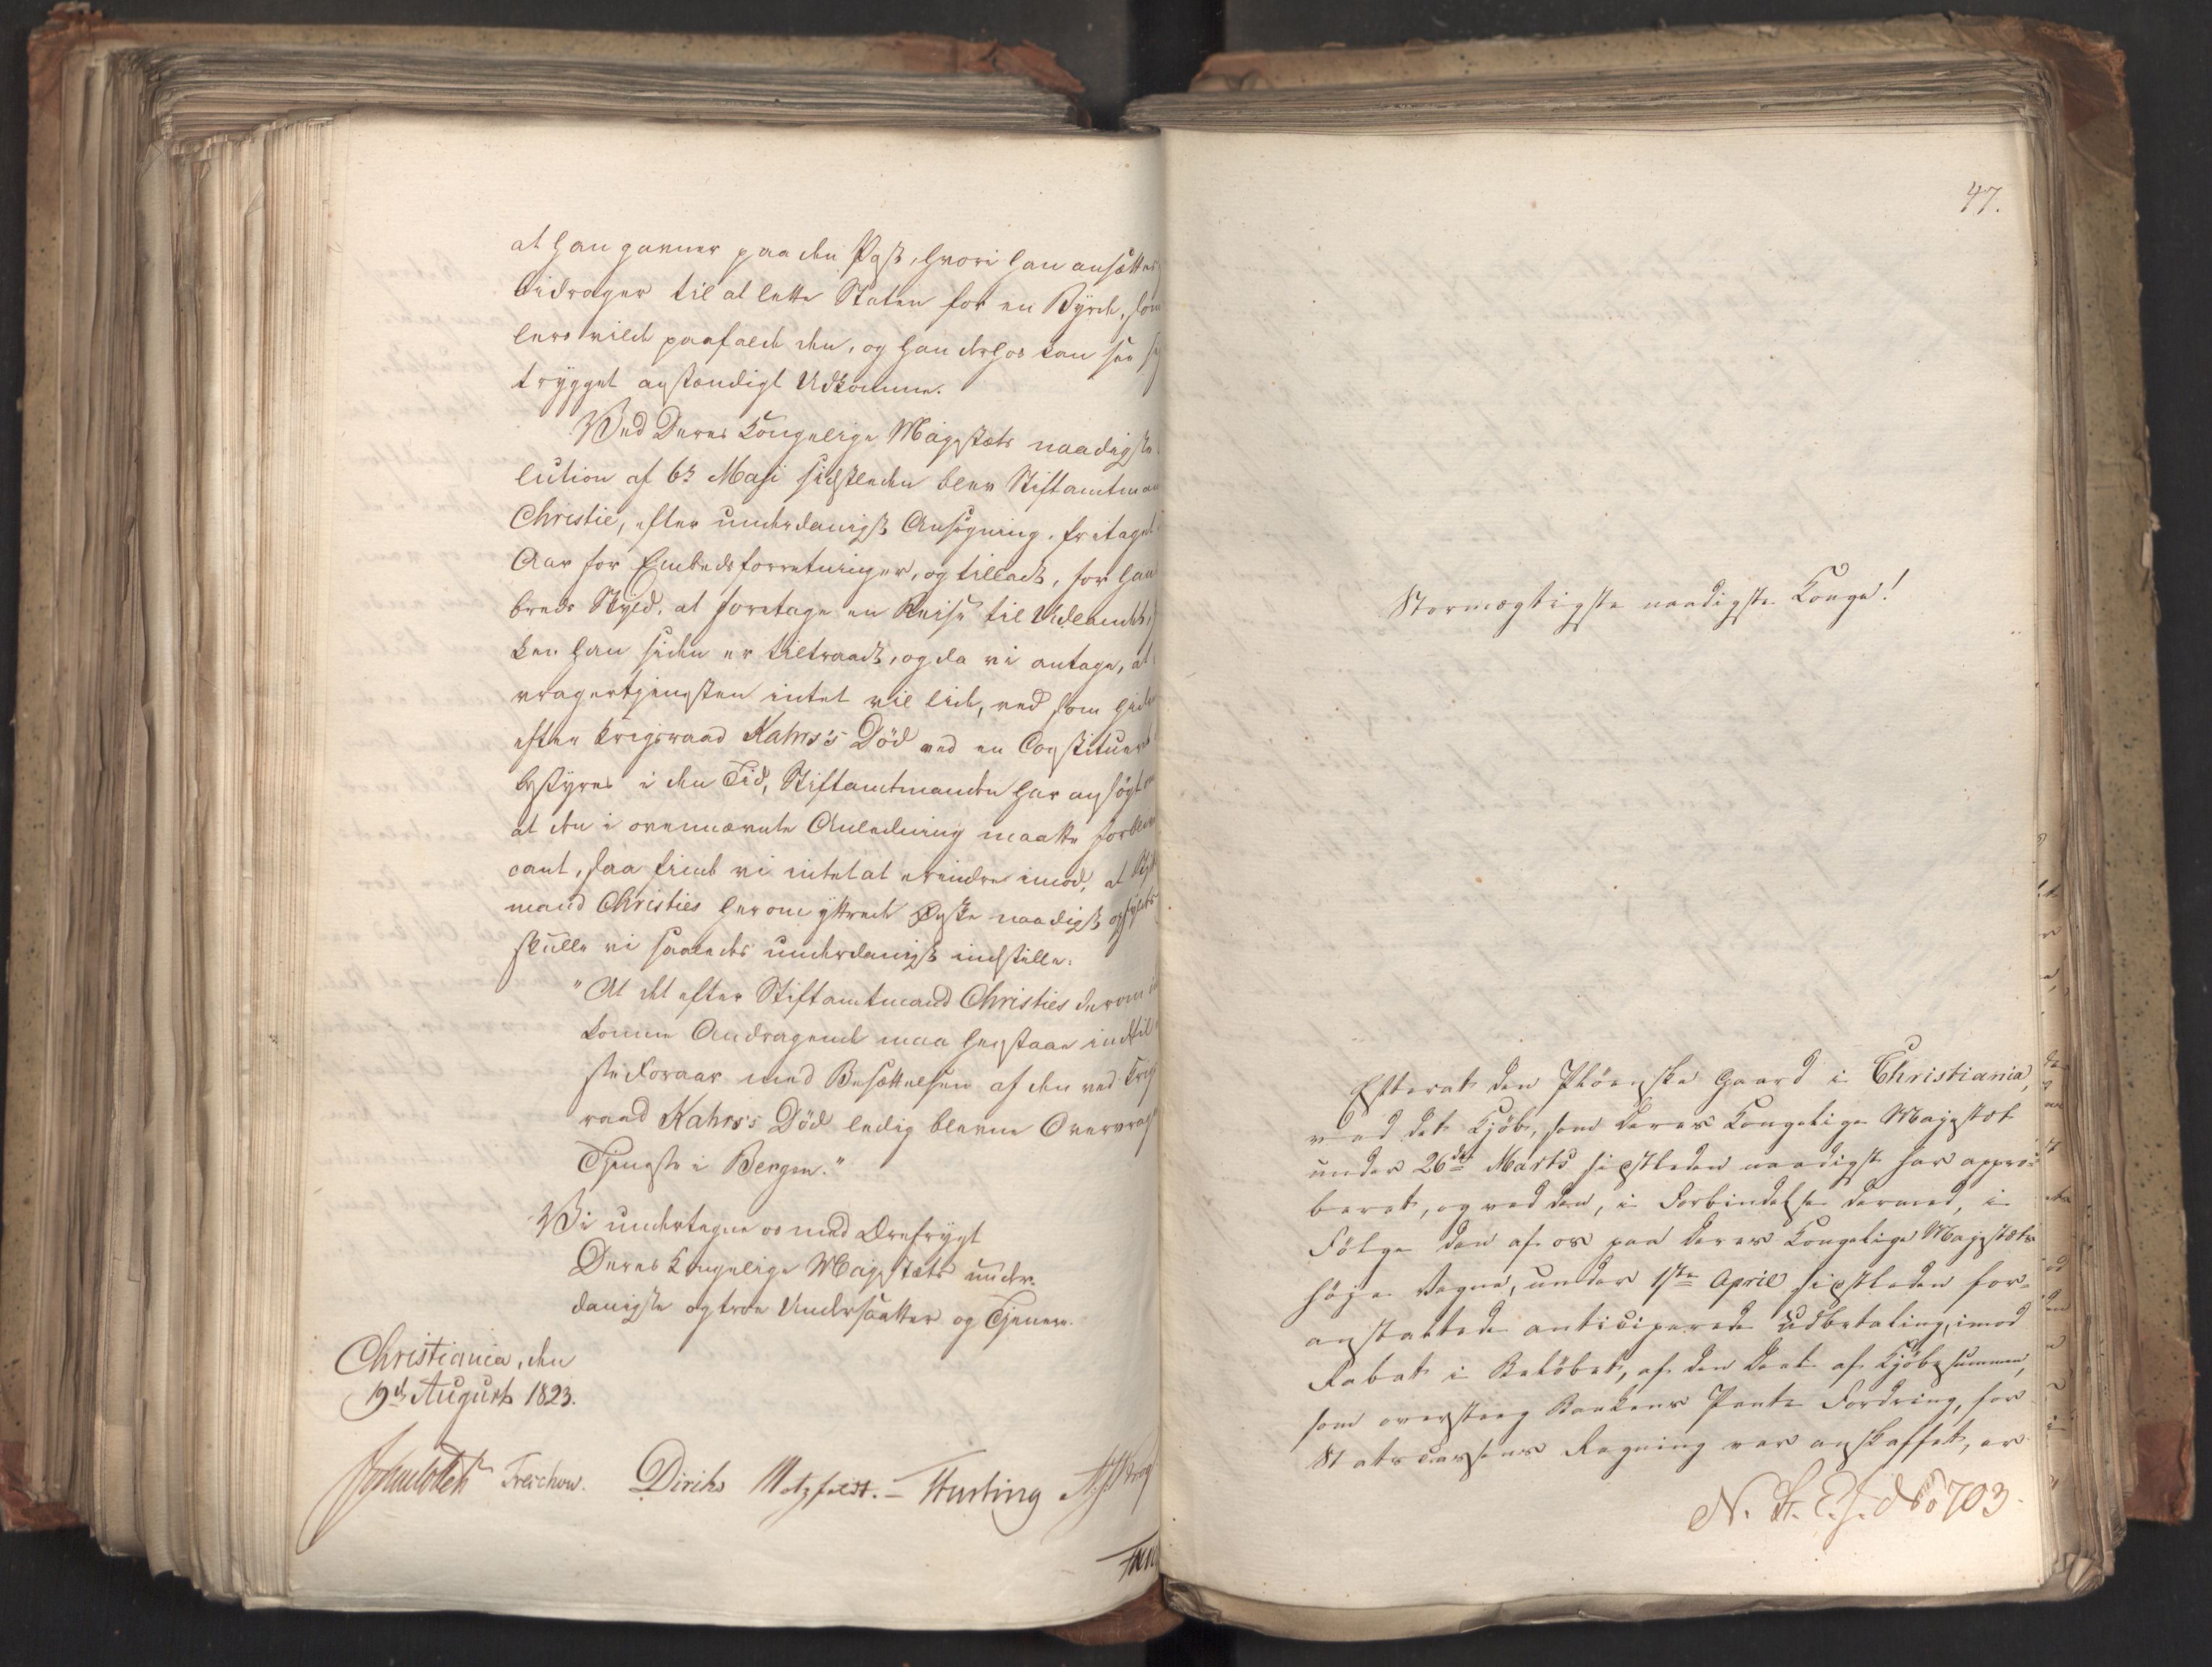 at han gavner paa den Post, hvori han ansættes
bidrager til at lette Staten for en Byrde, som
lers vilde paafalde den, og han derhos kan see
trygget anstændigt Udkomme.
Ved Deres Kongelige Majestæts naadigste
lution af 6te Maji sidstleden blev Stiftamtman
Christie, efter underdanigst Ansøgning, fritaget
Aar for Embedsforretninger, og tilladt, for Hel
breds Skyld, at foretage en Reise til Udlandet,
ken han siden er tiltraadt, og da vi antage, at
vragertjenesten intet vil lide, ved som hidtil
efter Krigsraad Kahrs's Død ved en Constitueret
bestyres i den Tid, Stiftamtmanden har ansøgt om
at den i ovennævnte Anledning maatte forblive
cant, saa finde vi intet at erindre imod, at Stift
mand Christies herom yttrede Ønske naadigst opfyldes
skulle vi saaledes underdanigst indstille:
"At det efter Stiftamtmand Christies derom ind
komne Andragende maa henstaae indtil
ste Foraar med Besættelsen af den ved Krigs
raad Kahrs's Død ledig blevne Overvrager
Tjeneste i Bergen."
Vi undertegne os med Ærefrygt
Deres Kongelige Majestæts under-
danigste og troe Undersaatter og Tjenere.
Christiania, den
19de August 1823.
Treschow. Diriks Motzfeldt. Hurting
47.
Stormægtigste naadigste Konge!
Efterat den Plöenske Gaard i Christiania,
ved det Kjøb, som Deres Kongelige Majestæt
under 26de Marts sidstleden naadigst har appro-
beret, og ved den, i Forbindelse dermed, i
Følge den af os paa Deres Kongelige Majestæts
høje Vegne, under 1ste April sidstleden for-
anstaltede anticiperede Udbetaling, imod
Rabat i Beløbet, af den Deel af Kjøbesummen,
som oversteeg Bankens Pante Fordring, for
Statscassens Regning var anskaffet, er
No 703.